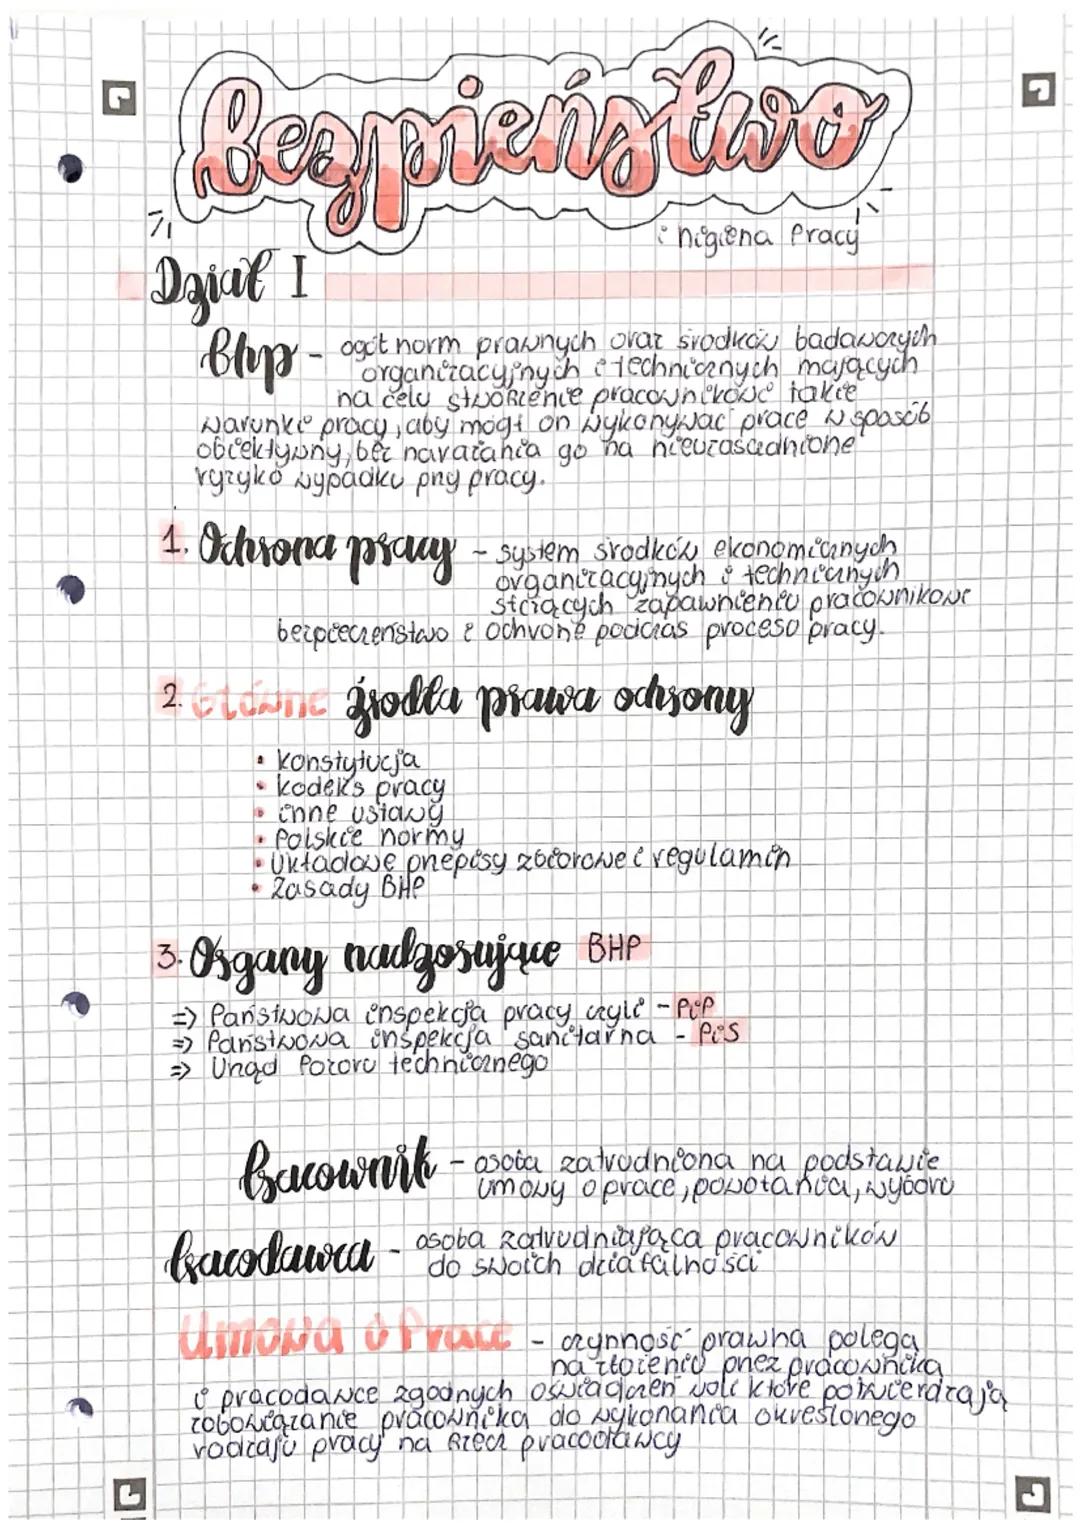 Bezpieństwo
i higiena Pracy
Dział I
Bhp - ogół norm prawnych oraz środków badawczych
organizacyjnych i technicznych mających
na celu stworzenie pracownikowi takie
warunki pracy, aby mógł on wykonywać prace w sposób
obiektywny, bez narażania go na nieuzasadnione
ryzyko wypadku przy pracy.
1. Ochrona pracy - system środków ekonomicznych
organizacyjnych i technicznych
służących zapawnieniu pracownikowi
bezpieczeństwo i ochronę podczas procesu pracy.
2. Główne źrodła prawa ochrony
• Konstytucja
• kodeks pracy
• inne ustawy
• Polskie normy
• Układowe przepisy zbiorowe i regulamin
• Zasady BHP
3. Organy nadzorujące BHP
⇒ Państwowa inspekcja pracy czyli - PiP
⇒ Państwowa inspekcja sanitarna - PiS
⇒ Urząd Pozoru technicznego
Pracownik - osoba zatrudniona na podstawie
umowy o prace, powołania, wyboru
Pracodawca - osoba zatrudniająca pracowników
do swoich działalności
Umowa o Prace - czynność prawna polega
na złożeniu przez pracownika
i pracodawce zgodnych oświadczeń woli które potwierdzają
zobowiązanie pracownika do wykonania określonego
rodzaju pracy na rzecz pracodawcy